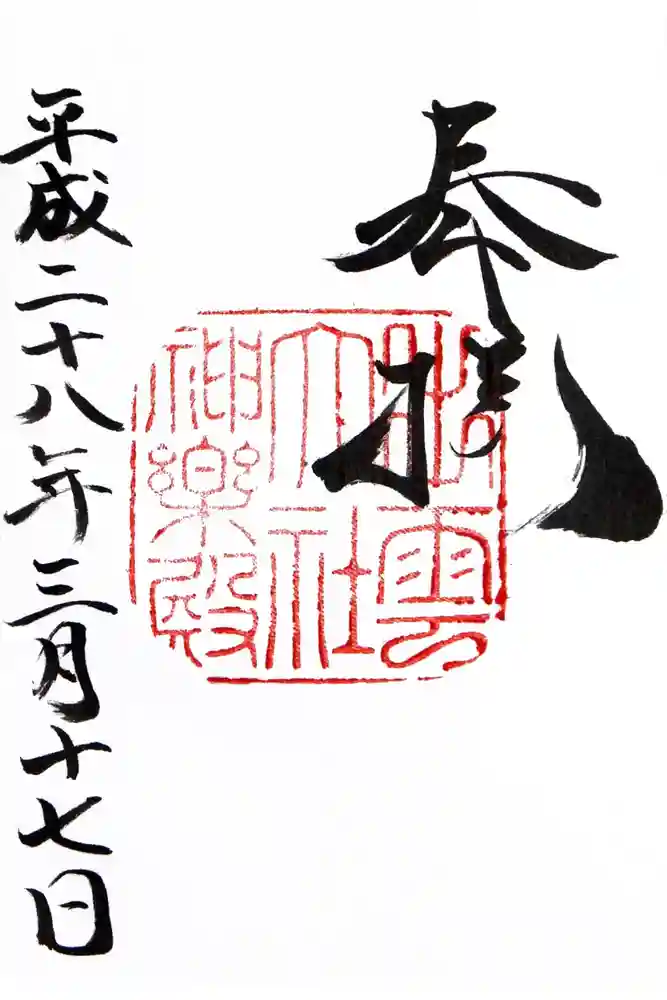 奉拝
出雲
大社
神楽殿
平成二十八年三月十七日